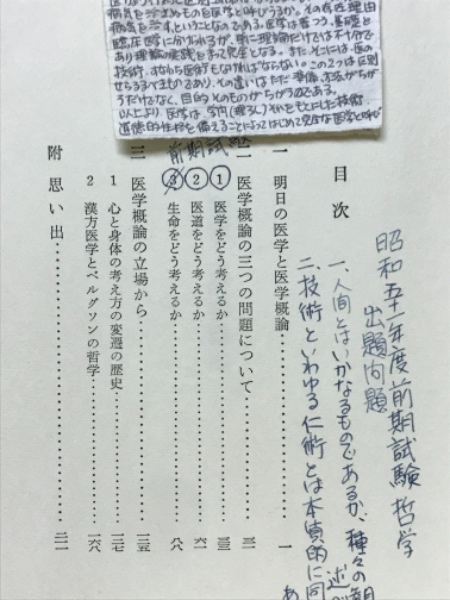 病気を治すものを医学と呼びうるか。その存在理由
病気を治す、ということなのである。医学は普つう、基礎と
臨床医学に分けられるが、単に理論だけでは不十分で
あり理論の実践をまって完全となる。また、そこには、医の
技術、すなわち医術もなければならない。この2つは区別
せらるべきものであり、その違いはただ準備、するかちが
うだけでなく、目的そのものがちがうのである。
以上より、医学は、学内(理ろん)それをもとにした技術、
道徳的性格を備えることによってはじめて完全な医学と呼び
昭和五十一年度前期試験哲学
出題問題
一、人間とはいかなるものであるか、種々の観
述べ
二、技術といわゆる仁術とは本質的に同
あ
目次
一 明日の医学と医学概論………一
二 医学概論の三つの問題について………三一
前期試験
① 医学をどう考えるか………三三
② 医道をどう考えるか………六一
③ 生命をどう考えるか………八八
三 医学概論の立場から………一三五
1 心と身体の考え方の変遷の歴史………一三七
2 漢方医学とベルグソンの哲学………一六八
附 思い出………二一